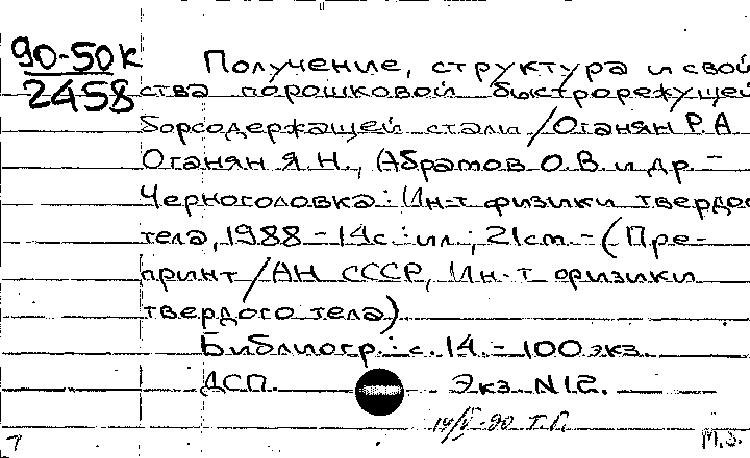 90-50к
2458
Получение, структура и свой
ства порошковой быстрорежущей
борсодержащей стали / Оганян Р.А
Оганян Я.Н., Абрамов О.В. и др. -
Черноголовка: Ин-т физики твердо
тела, 1988 - 14с.: ил; 21cm. - (Пре-
принт / АН СССР, Ин-т физики
твердого тела)
Библиогр.: с. 14. - 100 экз.
ДСП. Экз N12.
14/V-90 Т.П.
7 М.З.